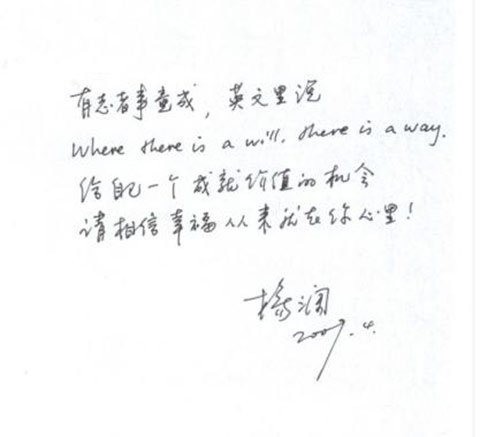 有志者事竟成，英文里说
Where there is a will, there is a way.
给自己一个成就价值的机会
请相信幸福从来就在你心里！
杨澜
2007.4.